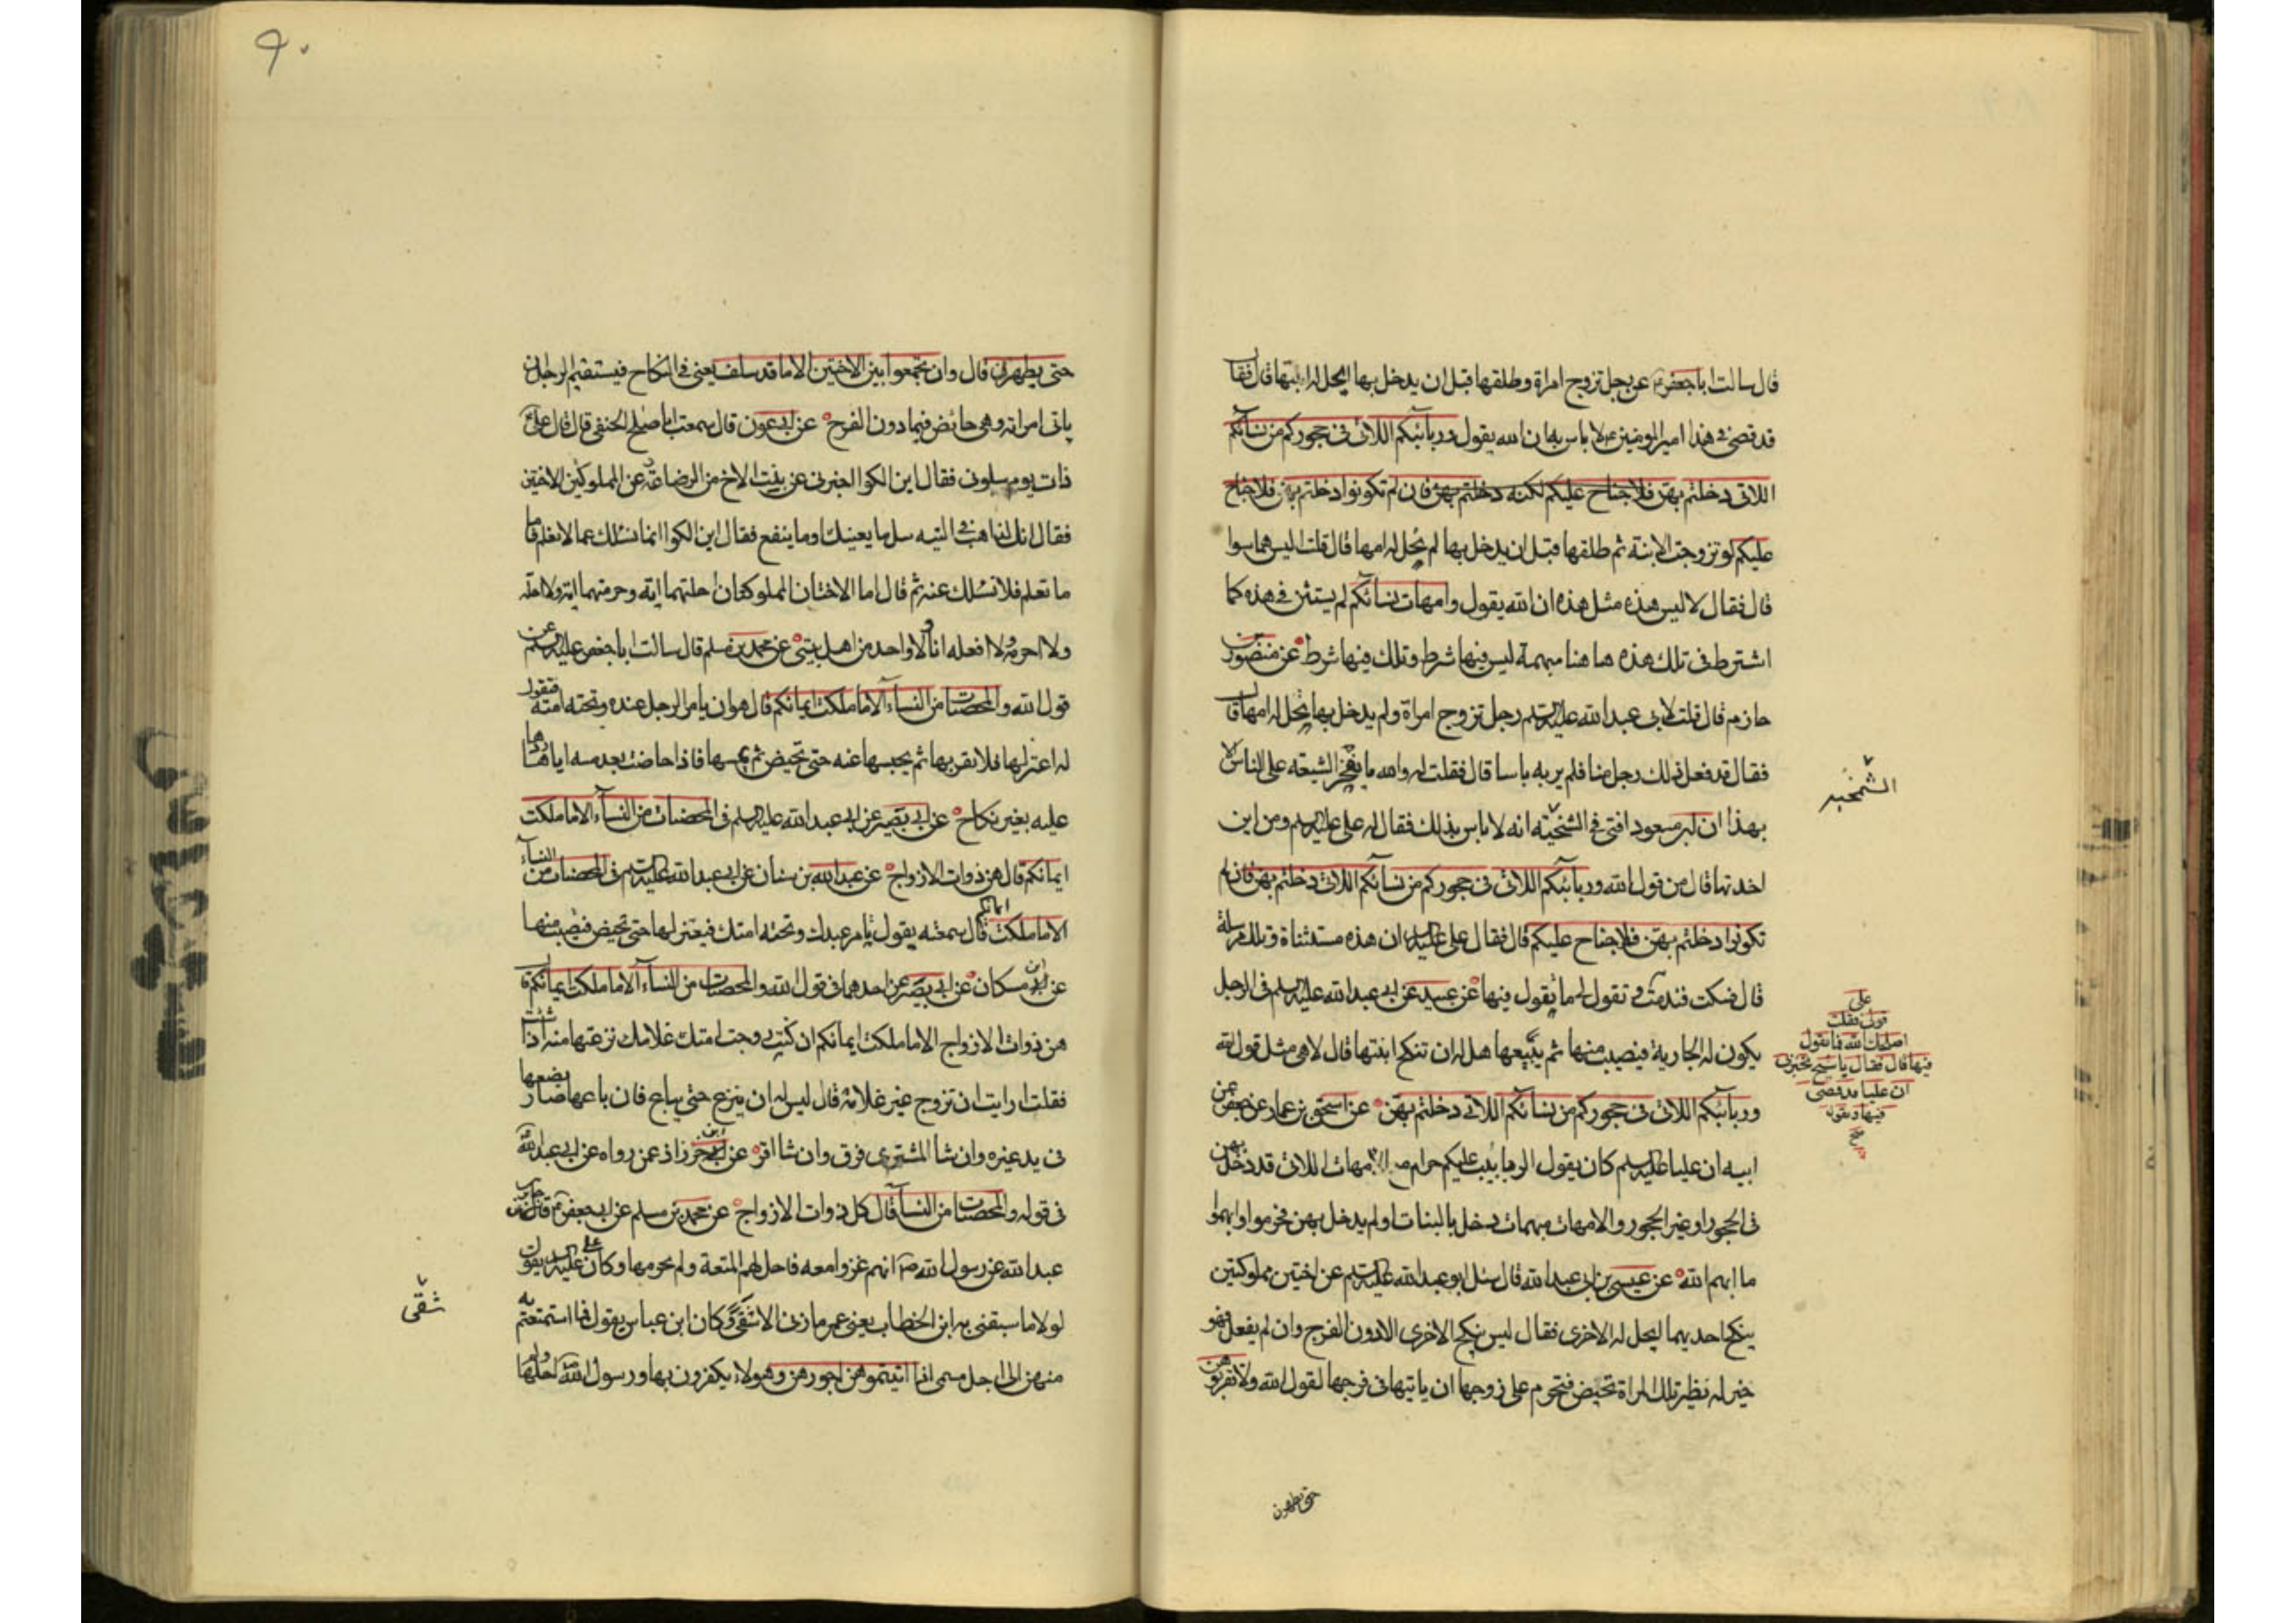 قال سالت ابا جعفر ع عن رجل تزوج امراة وطلقها قبل ان يدخل بها ايحل له ابنتها قال فقال
قد قضى فى هذا امير المومنين ع لا باس به ان الله يقول وربآئبكم اللاتى فى حجوركم من نسآئكم
اللاتى دخلتم بهن فلا جناح عليكم لكنه دخلتم بهن فان لم تكونوا دخلتم بهن فلا جناح
عليكم لو تزوجت الابنة ثم طلقها قبل ان يدخل بها لم يحل له امها قال قلت اليس هما سوا
قال فقال لا ليس هذه مثل هذه ان الله يقول وامهات نسآئكم لم يستثن فى هذه كما
اشترط فى تلك هذه ها هنا مبهمة ليس فيها شرط وتلك فيها شرط عن منصور بن
حازم قال قلت لابى عبد الله عليه السلم رجل تزوج امراة ولم يدخل بها يحل له امها قال
فقال قد فعل ذلك رجل منا فلم ير به باسا قال فقلت له والله ما يفخر الشيعة على الناس الا
بهذا ان ابن مسعود افتى فى الشخيته انه لا باس بذلك فقال له على عليه السلم ومن اين
اخذتها قال من قول الله وربآئبكم اللاتى فى حجوركم من نسآئكم اللاتى دخلتم بهن فان لم
تكونوا دخلتم بهن فلا جناح عليكم قال فقال على عليه السلم ان هذه مستثناة وتلك مرسلة
قال فسكت فندمت و تقول له ما تقول فيها عن عبيد عن ابى عبد الله عليه السلم فى الرجل
يكون له الجارية فيصيب منها ثم يبيعها هل له ان تنكح ابنتها قال لا هى مثل قول الله
وربآئبكم اللاتى فى حجوركم من نسآئكم اللاتى دخلتم بهن عن اسحق بن عمار عن جعفر عن
ابيه ان عليا عليه السلم كان يقول الربايب عليكم حرام مع الامهات اللاتى قد دخل بهن
فى الحجور او غير الحجور والامهات مبهمات دخل بالبنات او لم يدخل بهن فحرموا وابهموا
ما ابهم الله عن عيسى بن ابى عبد الله قال سئل ابو عبد الله عليه السلم عن اختين مملوكتين
ينكح احديهما ايحل له الاخرى فقال ليس ينكح الاخرى الا دون الفرج وان لم يفعل فهو
خير له نظير تلك المراة تحيض فتحرم على زوجها ان ياتيها فى فرجها لقول الله ولا تقربوهن
حتى يطهرن
الشمخيه
على
قولى فقلت
اصلحك الله فما تقول
فيها قال فقال يا شيخ تخبرنى
ان عليا قد قضى
فيها وتقول
صح
٩٠
حتى يطهرن قال وان تجمعوا بين الاختين الا ما قد سلف يعنى فى النكاح فيستقيم الرجل ان
ياتى امراته وهى حائض فيما دون الفرج عن ابى عون قال سمعت ابا صالح الحنفى قال قال على ع
ذات يوم سلونى فقال ابن الكوا اخبرنى عن بنت الاخ من الرضاعة وعن المملوكتين الاختين
فقال انك لذاهب فى التيه سل ما يعينك او ما ينفع فقال ابن الكوا انما نسئلك عما لا نعلم فاما
ما نعلم فلا نسئلك عنه ثم قال اما الاختان المملوكتان احلتهما اية وحرمتهما اية ولا احله
ولا احرمه ولا افعله انا ولا واحد من اهل بيتى عن محمد بن مسلم قال سالت ابا جعفر عليه السلم عن
قول الله والمحصنات من النسآء الا ما ملكت ايمانكم قال هو ان يامر الرجل عبده وتحته امته فيقول
له اعتزلها فلا تقربها ثم يحبسها عنه حتى تحيض ثم يمسها فاذا حاضت بعد مسه اياها ردها
عليه بغير نكاح عن ابى بصير عن ابى عبد الله عليه السلم فى المحصنات من النسآء الا ما ملكت
ايمانكم قال هن ذوات الازواج عن عبد الله بن سنان عن ابى عبد الله عليه السلم فى المحصنات من النسآء
الا ما ملكت ايمانكم قال سمعته يقول يامر عبدك وتحته امتك فيعتزلها حتى تحيض فيصيب منها
عن ابن مسكان عن ابى بصير عن احدهما فى قول الله والمحصنات من النسآء الا ما ملكت ايمانكم قال
هن ذوات الازواج الا ما ملكت ايمانكم ان كنت زوجت امتك غلامك نزعتها منه اذا شئت
فقلت ارايت ان تزوج غير غلامه قال ليس له ان ينزع حتى يباع فان باعها صار بضعها
فى يد غيره وان شا المشترى فرق وان شا اقر عن ابن خرزاذ عمن رواه عن ابى عبد الله
فى قوله والمحصنات من النسآء قال كل ذوات الازواج عن محمد بن مسلم عن ابى جعفر ع قال جابر بن
عبد الله عن رسول الله ص انهم غزوا معه فاحل لهم المتعة ولم يحرمها وكان على عليه السلم يقول
لولا ما سبقنى به ابن الخطاب يعنى عمر ما زنى الا شقى وكان ابن عباس يقول فما استمتعتم به
منهن الى اجل مسمى اذا اتيتموهن اجورهن وهولاء يكفرون بها ورسول الله ص احلها
شقى